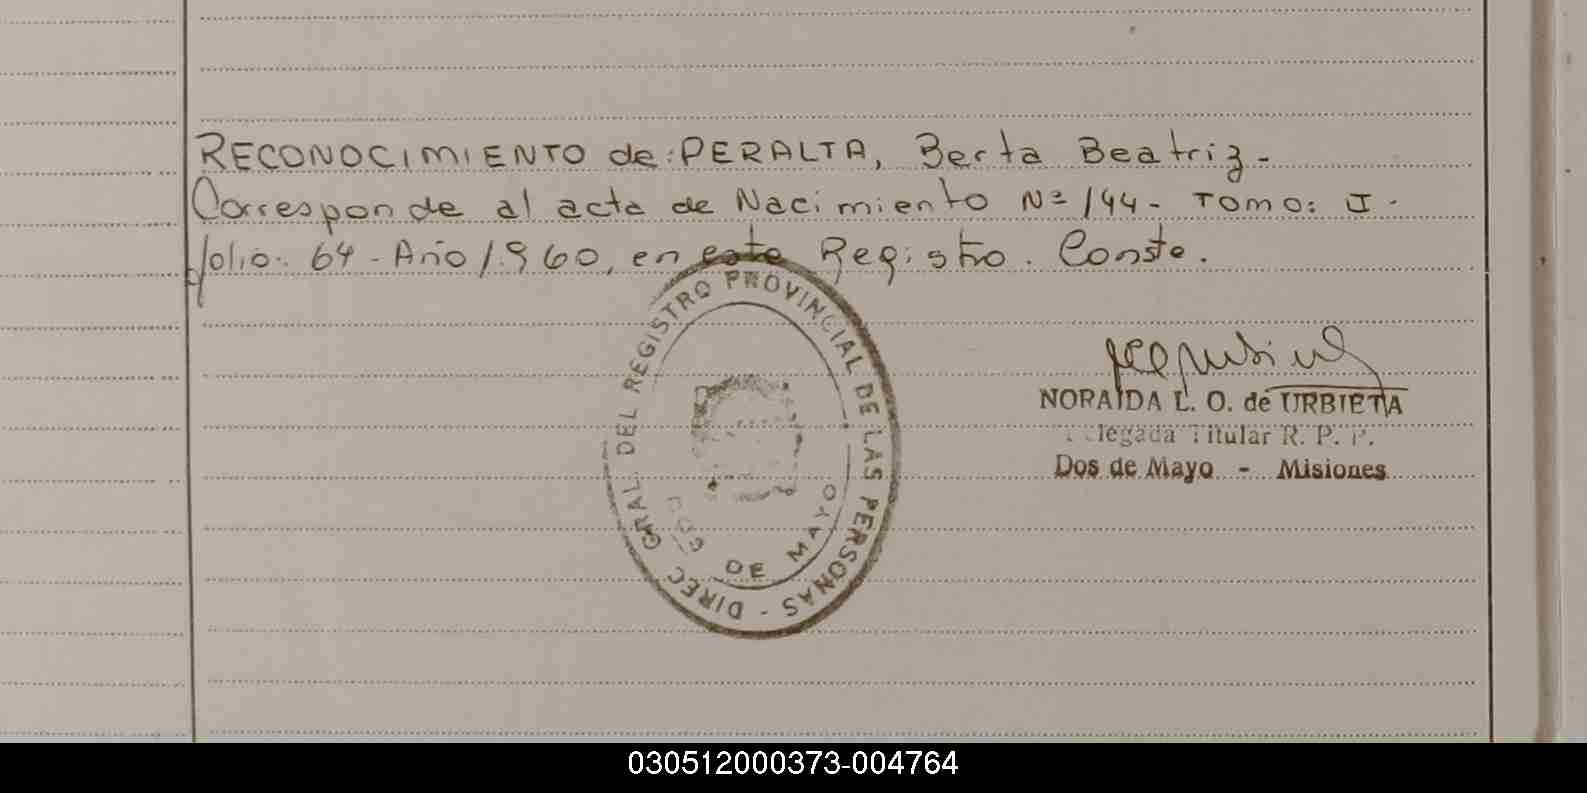 RECONOCIMIENTO de: PERALTA, Berta Beatriz-
Corresponde al acta de Nacimiento Nº 144- TOMO: I.
folio. 64 - Año 1.960, en este Registro. Conste.
DIREC GRAL. DEL REGISTRO PROVINCIAL DE LAS PERSONAS -
DOS DE MAYO
NORAIDA L. O. de URBIETA
Delegada Titular R. P. P.
Dos de Mayo - Misiones
030512000373-004764